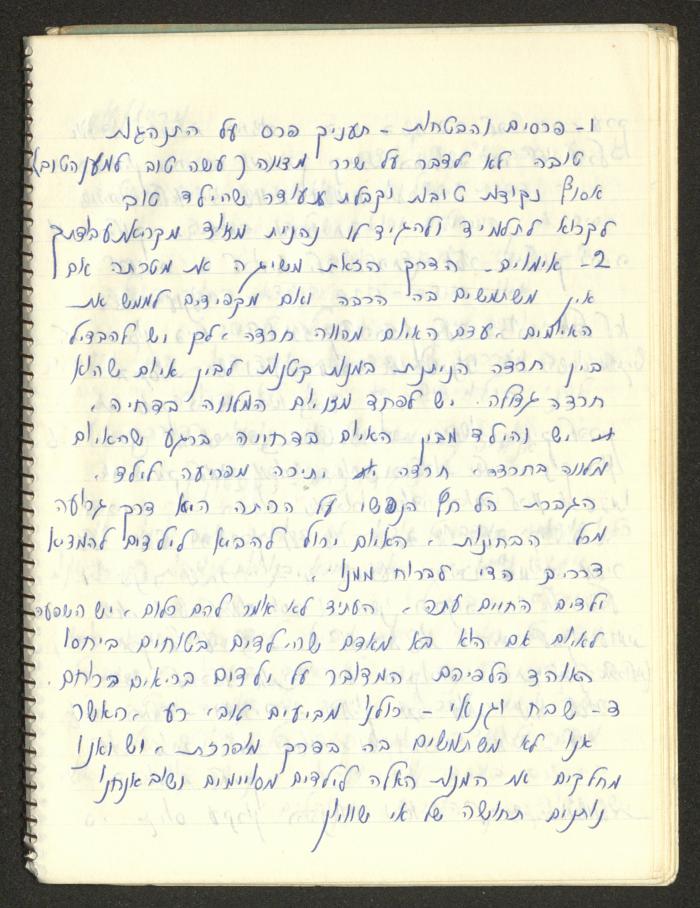 1- פרסים והבטחות - תעניק פרס על התנהגות
טובה לא לדבר על שכר מצווה (עשה טוב למען הטוב)
אסוף נקודות טובות וקבלת תעודה שהילד טוב
לקרוא לתלמיד ולהגיד לו נהנית מאוד מקריאת עבודתך
2- איומים - הדרך הזאת משיגה את מטרתה אם
אין משתמשים בה הרבה ואם מקפידים לממש את
האיומים. עצם האיום מהווה חרדה. לכן יש להבדיל
בין חרדה הניתנת במנות קטנות לבין איום שהוא
חרדה גדולה. יש לפחד מצויים המלווה בדחיה.
יש והילד מבין האיום בדחויה ברגע שהאיום
מלווה בחרדה. חרדה יתירה מפריעה לילד.
הגברת הלחץ הנפשי על הכתה היא דרך גרועה
מכל הבחינות. האיום יכול להביא לילדים להמציא
דרכים כדי לברוח ממנו.
ילדים החיים עתה. העתיד לא אומר להם כלום. יש השפעה
לאיום אם הוא בא מאדם שהילדים בטוחים ביחסו
האוהד כלפיהם המדובר על ילדים בריאים ברוחם.
3- שבח וגנאי - כולנו מביעים טוב רע. כאשר
אנו לא משתמשים בה בדרך מופרזת. יש ואנו
מחלקים את המנות האלה לילדים מסויימים ושוב אנחנו
נותנים תחושה של אי שוויון